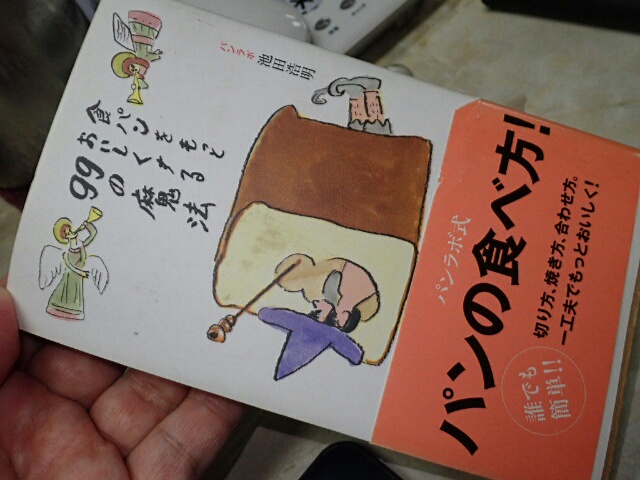 パンラボ 池田浩明
食パンをもっと
おいしくする
99の魔法
パンラボ式
パンの食べ方!
切り方、焼き方、合わせ方。
一工夫でもっとおいしく!
誰でも
簡単!!